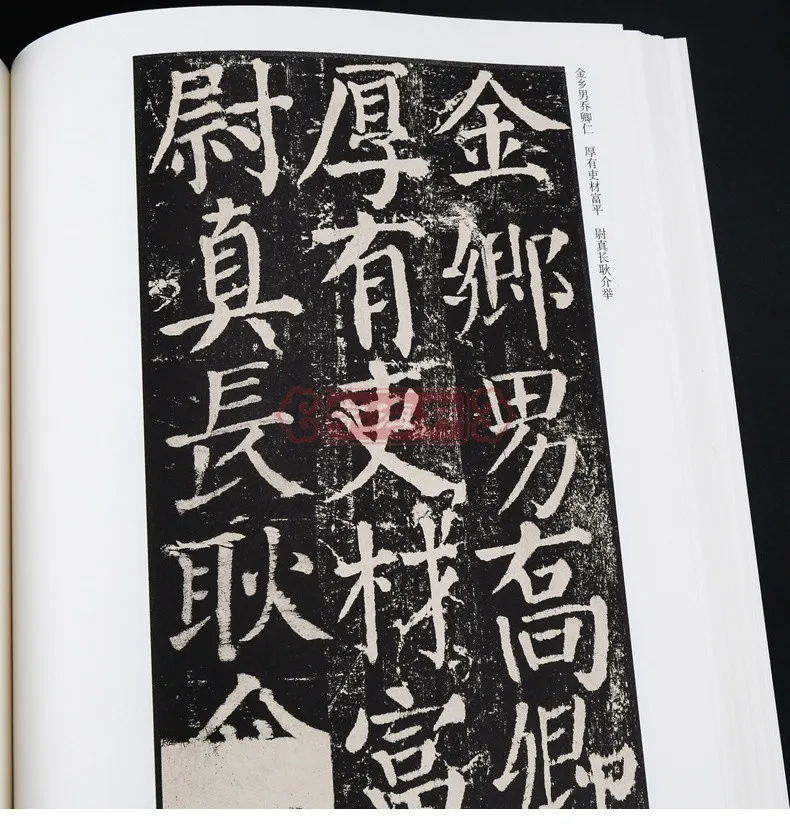 金乡男乔卿仁　厚有吏材富平　尉真长耿介举
金鄉男喬卿
厚有吏材富
尉真長耿介